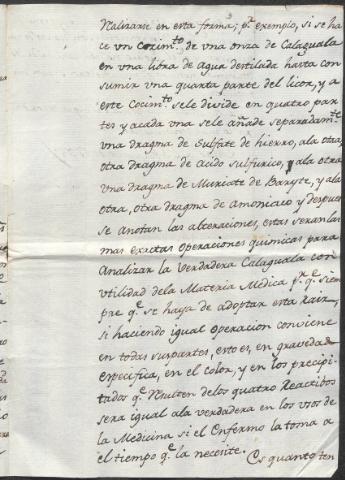 Nalizarse en esta forma; pr. exemplo, si se ha-
ce vn Cocim.to de vna onza de Calaguala
en vna libra de agua destilada hasta con
sumir vna quarta parte del licor, y a
este Cocim.to se le divide en quatro par
tes y acada vna sele añade separadam.te
vna dragma de Sulfate de hierro, ala otra,
otra dragma de Acido Sulfurico, y ala otra
vna dragma de Muriate de Baryte, y ala
otra, otra dragma de Amoniaco y despues
se anotan las alteraciones, estas seran las
mas exactas operaciones quimicas para
Analizar la verdadera Calaguala con
vtilidad dela Materia Medica pr. qe. siem
pre qe. se haya de adoptar esta Raiz,
si haciendo igual operacion conviene
en todas suspartes, esto es, en gravedad
especifica, en el color, y en los precipi-
tados qe. Resulten delos quatro Reactibos
sera igual ala verdadera en los vsos de
la Medicina si el Enfermo la toma a
el tiempo qe. la necesite. Es quanto ten